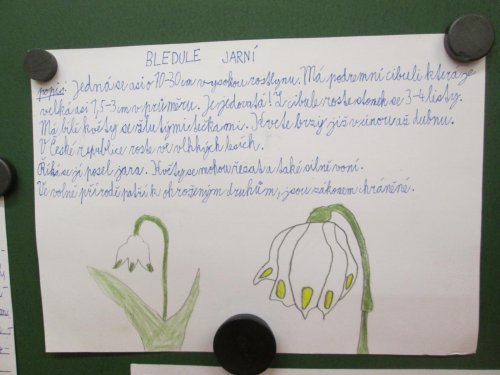 BLEDULE JARNÍ
popis: Jedná se asi o 10-30cm vysokou rostlynu. Má podzemní cibuli která je
velká asi 1,5-3cm v průměru. Je jedovatá! Z cibule roste stonek se 3-4 listy.
Má bílé květy se žlutými tečkami. Kvete brzy již v únoru až dubnu.
V České republice roste ve vlhkých lesích.
Říká se jí posel jara. Květy se mohou řezat a také silně voní.
Ve volné přírodě patří k ohroženým druhům, jsou zákonem chráněné.